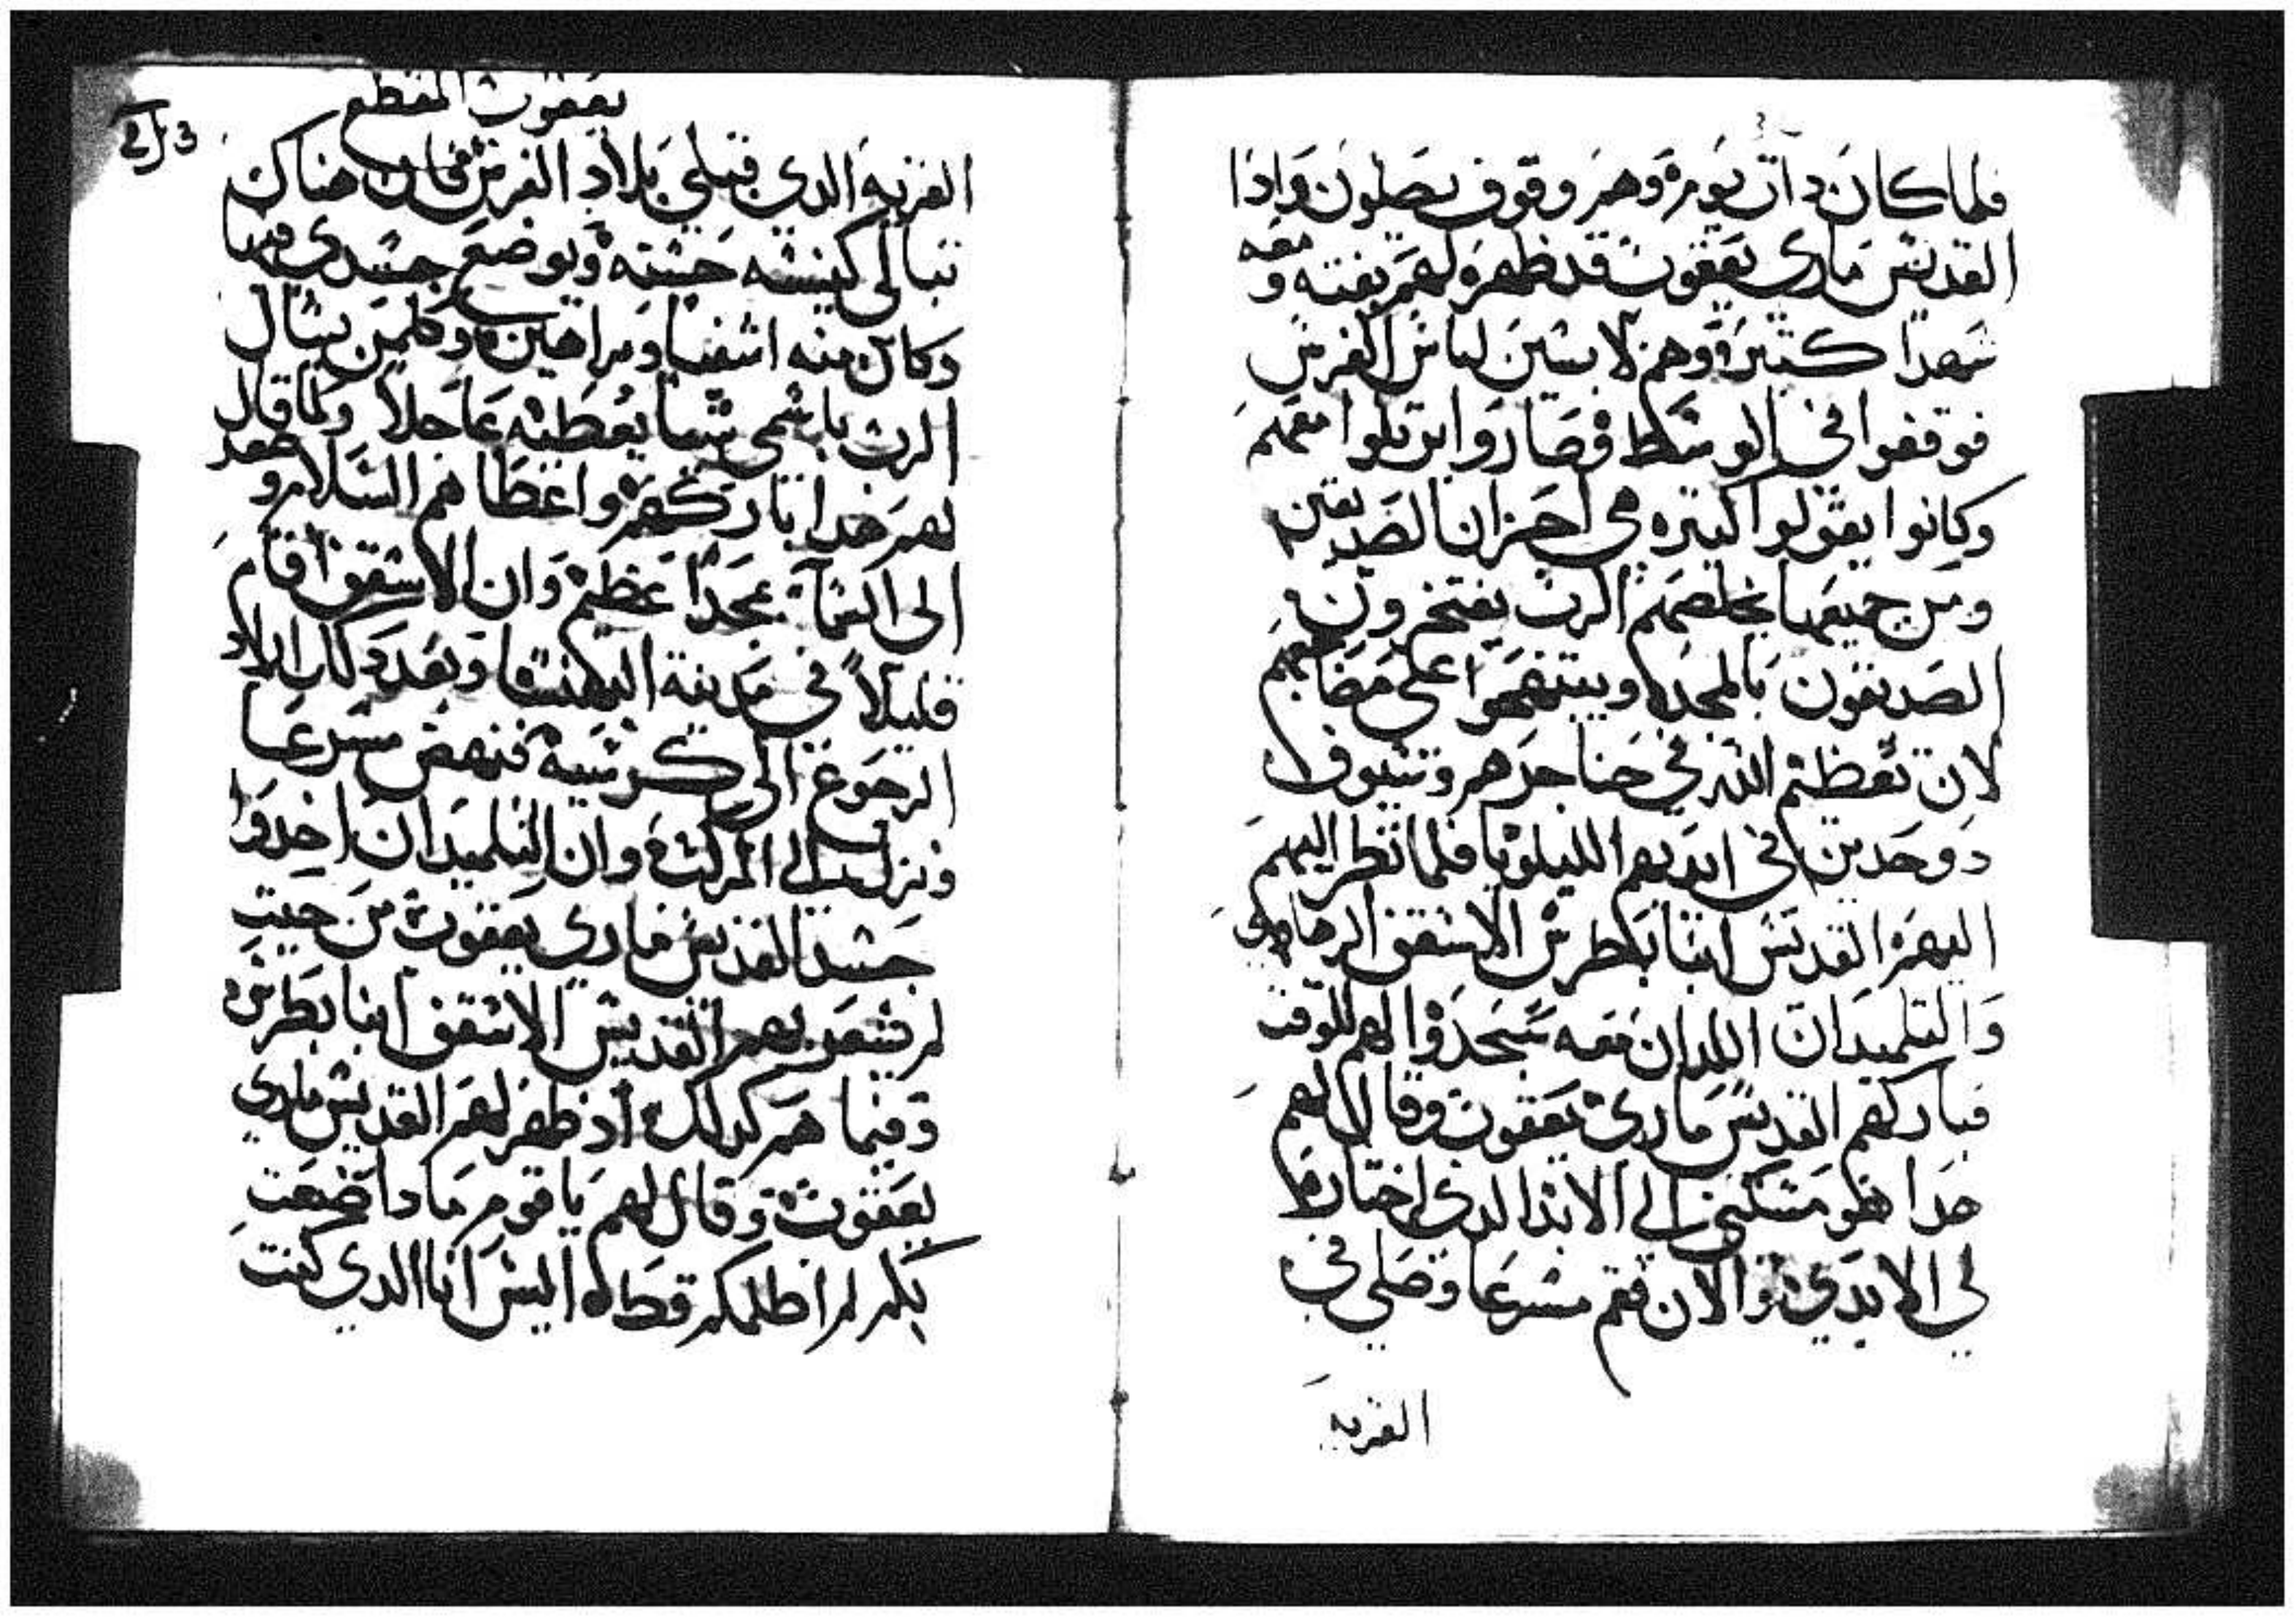 فلما كان دات يوم وهم وقوف يصلون وادا
القديس ماري يعقوب قد ظهر لهم بغته ومعه
شهدا كتيرة وهم لابسين لباس الفرس
فوقفوا في الوسط وصاروا يرتلوا معهم
وكانوا يقولوا كتيره هي احزان الصديقين
ومن جميعها يخلصهم الرب يفتخرون
الصديقون بالمجد ويبتهجوا على مضاجعهم
لان تعظيم الله في حناجرهم وسيوف
دو حدين في ايديهم الليلويا فلما نظر اليهم
القديس انبا بطرس الاسقف الرهاوي
والتلميدان اللدان معه سجدوا لهم للوقت
فباركهم القديس ماري يعقوب وقال لهم
هدا هو مسكني الى الابد الدي اختاره
لي الابدي والان فقم مسرعا وصلي في
القريه
يعقوب المقطع
213
القريه الدي قبلي بلاد الفرس فان هناك
تبنا لي كنيسه حسنه ويوضع جسدي فيها
وكائن منه اشفيا وبراهين وكلمن يسال
الرب باسمي شيا يعطيه عاجلا ولما قال
لهم هدا باركهم واعطاهم السلام وصعد
الى السما بمجدا عظيم وان الاسقف اقام
قليلا في مدينة البهنسا وبعد دلك اراد
الرجوع الى كرسيه فنهض مسرعا
ونزل الى المركب وان التلميدان اخدوا
جسد القديس ماري يعقوب من حيت
لم يشعر بهم القديس الاسقف انبا بطرس
وفيما هم كدلك اد ظهر لهم القديس ماري
يعقوب وقال لهم يا قوم مادا صنعت
بكم لم اظلمكم قط اليس انا الدي كنت